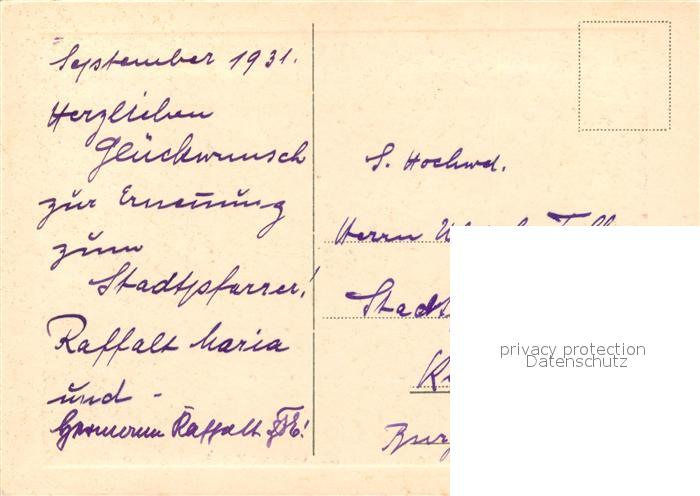 September 1931.
Herzlichen
Glückwunsch
zur Ernennung
zum
Stadtpfarrer!
Raffalt Maria
und -
Raffalt
S. Hochwd.
Herrn
privacy protection
Datenschutz